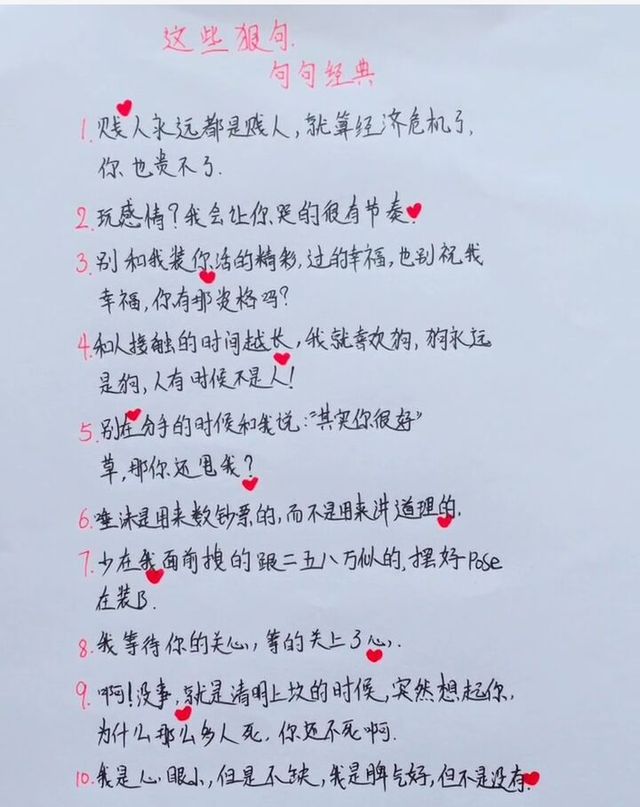 这些狠句.
句句经典
1. 贱人永远都是贱人,就算经济危机了,
你也贵不了.
2. 玩感情?我会让你哭的很有节奏.
3. 别和我装你活的精彩,过的幸福,也别祝我
幸福,你有那资格吗?
4. 和人接触的时间越长,我就喜欢狗,狗永远
是狗,人有时候不是人!
5. 别在分手的时候和我说:“其实你很好”
草,那你还甩我?
6. 唾沫是用来数钞票的,而不是用来讲道理的.
7. 少在我面前拽的跟二五八万似的,摆好Pose
在装B.
8. 我等待你的关心,等的关上了心.
9. 啊!没事,就是清明上坟的时候,突然想起你,
为什么那么多人死,你还不死啊.
10. 我是心眼小,但是不缺,我是脾气好,但不是没有.